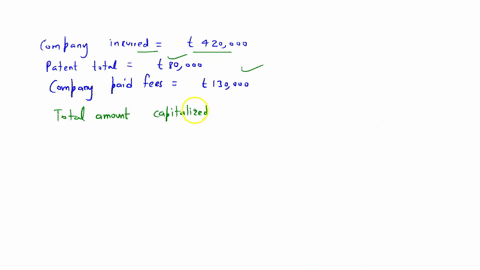 Company insured = t 420,000
Patent total = t 80,000
Company paid fees = t 130,000
Total amount capitalized